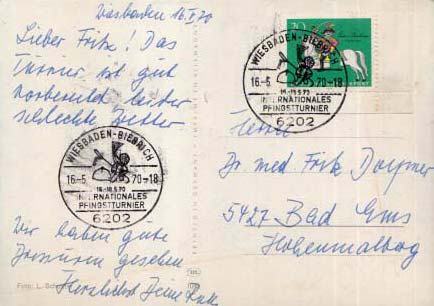 Wiesbaden 16.V.70
Lieber Fritz! Das
Turnier ist gut
vorbereitet leider
schlechte Wetter
WIESBADEN-BIEBRICH
16.-5 70-18
16.-18.5.70
INTERNATIONALES
PFINGSTTURNIER
6202
Wir haben gute
gesehen
Herzlichst Deine
Foto: L.
WIESBADEN-BIEBRICH
16.-5 70-18
16.-18.5.70
INTERNATIONALES
PFINGSTTURNIER
6202
20
Herrn
Dr. med. Fritz
5427 Bad Ems